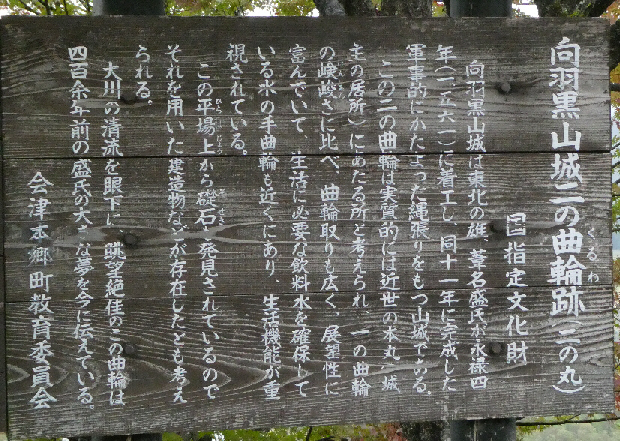 向羽黒山城二の曲輪跡(二の丸)
くるわ
国指定文化財
向羽黒山城は東北の雄、葦名盛氏が永禄四
年(一五六一)に着工し、同十一年に完成した
軍事的にかたよった縄張りをもつ山城である。
この二の曲輪は実質的には近世の本丸(城
主の居所)にあたる所と考えられ、一の曲輪
の峻嶮さに比べ、曲輪取りも広く、展望性に
富んでいて、生活に必要な飲料水を確保して
いる水の手曲輪も近くにあり、生活機能が重
視されている。
この平場上から礎石も発見されているので
それを用いた建造物などが存在したとも考え
られる。
大川の清流を眼下に、眺望絶佳のこの曲輪は
四百余年前の盛氏の大きな夢を今に伝えている。
会津本郷町教育委員会